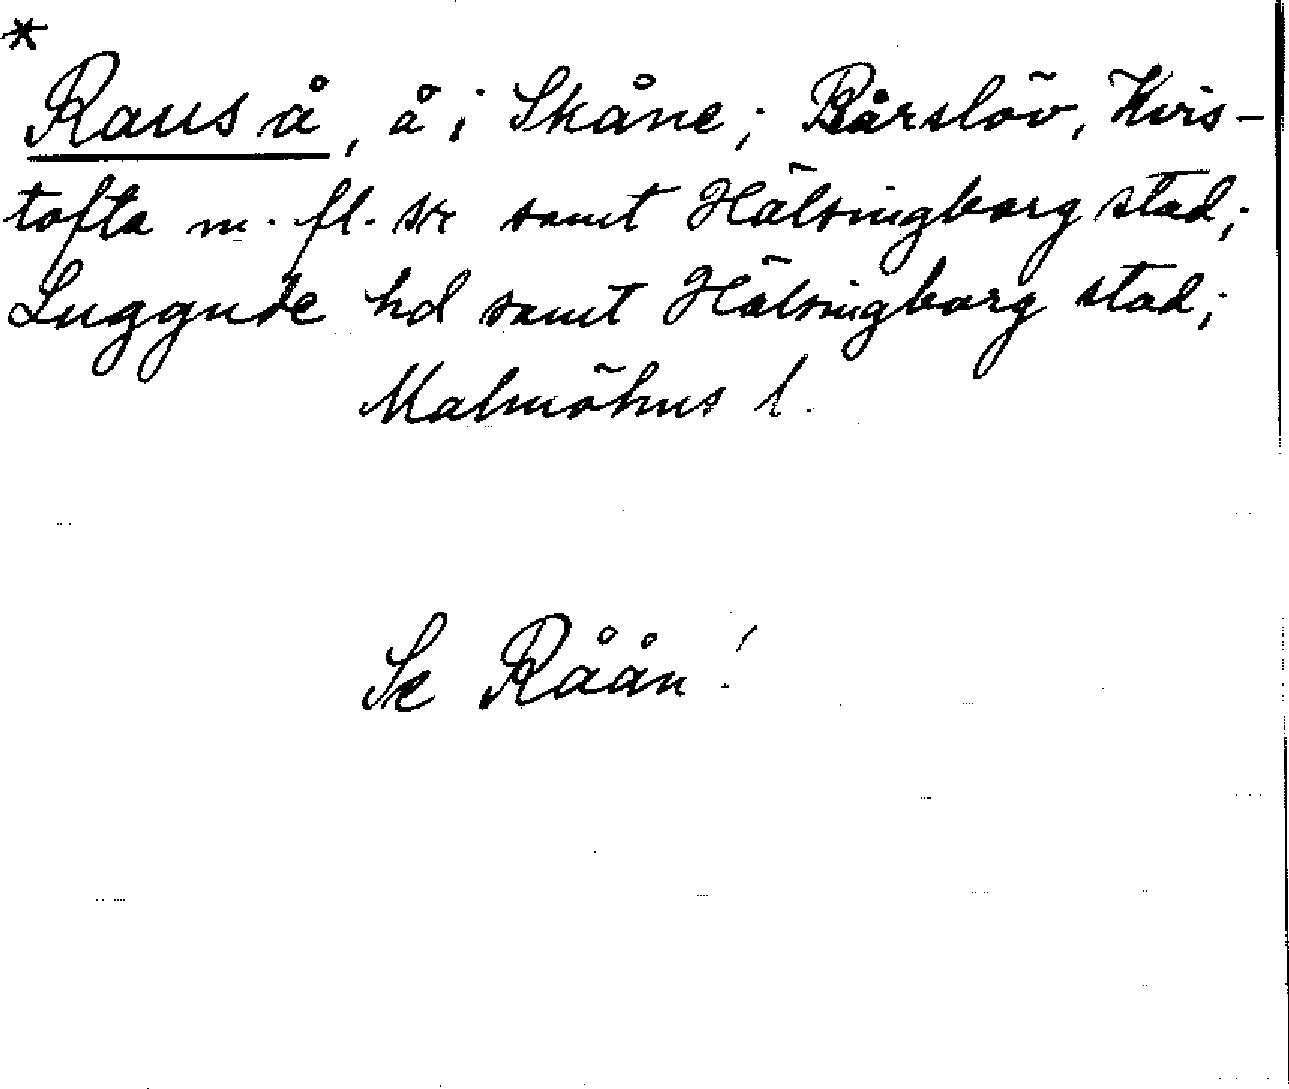 *
Raus å, å i Skåne; Bårslöv, Kvis-
tofta m. fl. sr samt Hälsingborg stad;
Luggude hd samt Hälsingborg stad;
Malmöhus l.
Se Råån!